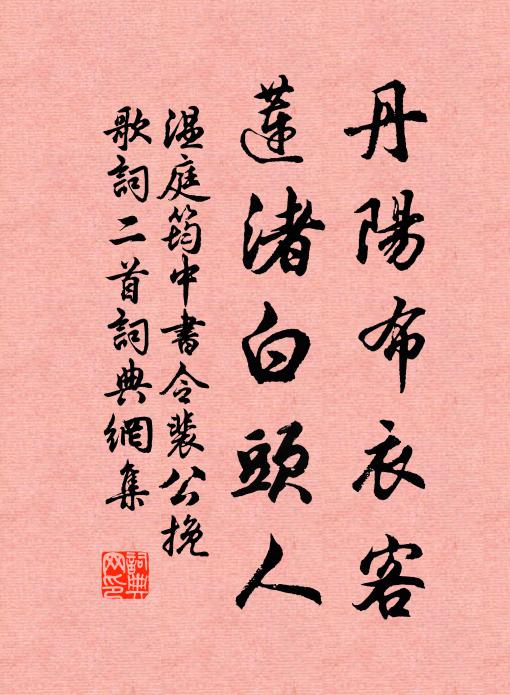 丹陽布衣客
蓮渚白頭人
溫庭筠中書令裴公挽
歌詞二首詞典網集
詞典
网印